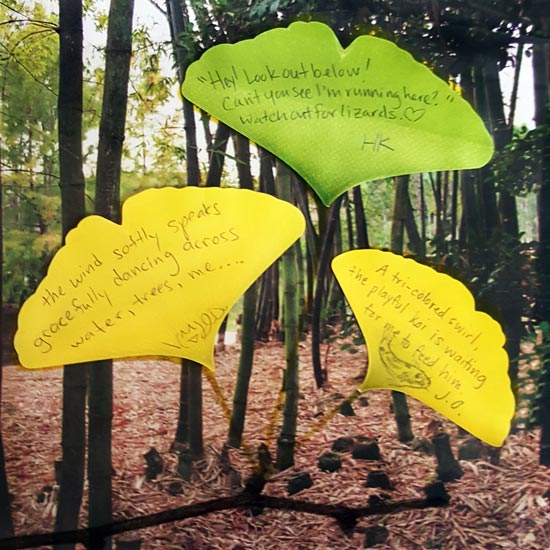 "Hey! Look out below!
Can't you see I'm running here?"
Watch out for lizards. ♡
HK
the wind softly speaks
gracefully dancing across
water, trees, me....
A tri-colored swirl,
the playful koi is waiting
for me to feed him.
J.O.